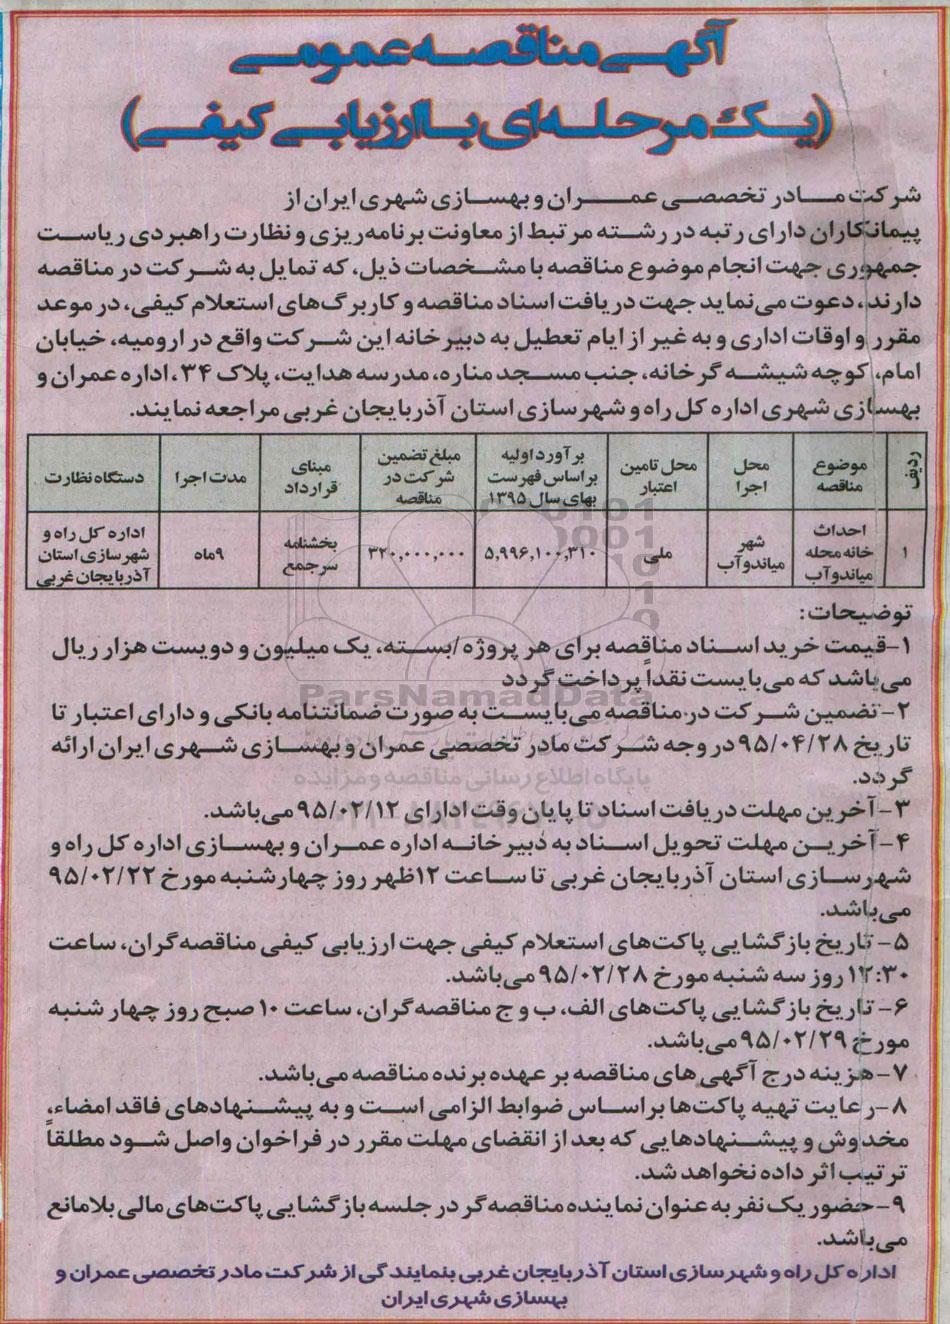 آگهی مناقصه عمومی
(یک مرحله‌ای با ارزیابی کیفی)
شرکت مادر تخصصی عمران و بهسازی شهری ایران از
پیمانکاران دارای رتبه در رشته مرتبط از معاونت برنامه‌ریزی و نظارت راهبردی ریاست
جمهوری جهت انجام موضوع مناقصه با مشخصات ذیل، که تمایل به شرکت در مناقصه
دارند، دعوت می‌نماید جهت دریافت اسناد مناقصه و کاربرگ‌های استعلام کیفی، در موعد
مقرر و اوقات اداری و به غیر از ایام تعطیل به دبیرخانه این شرکت واقع در ارومیه، خیابان
امام، کوچه شیشه گرخانه، جنب مسجد مناره، مدرسه هدایت، پلاک ۳۴، اداره عمران و
بهسازی شهری اداره کل راه و شهرسازی استان آذربایجان غربی مراجعه نمایند.
ردیف | موضوع مناقصه | محل اجرا | محل تامین اعتبار | برآورد اولیه براساس فهرست بهای سال ۱۳۹۵ | مبلغ تضمین شرکت در مناقصه | مبنای قرارداد | مدت اجرا | دستگاه نظارت
۱ | احداث خانه محله میاندوآب | شهر میاندوآب | ملی | ۵,۹۹۶,۱۰۰,۳۱۰ | ۳۲۰,۰۰۰,۰۰۰ | بخشنامه سرجمع | ۹ماه | اداره کل راه و شهرسازی استان آذربایجان غربی
توضیحات:
۱-قیمت خرید اسناد مناقصه برای هر پروژه /بسته، یک میلیون و دویست هزار ریال
می‌باشد که می‌بایست نقداً پرداخت گردد
۲-تضمین شرکت در مناقصه می‌بایست به صورت ضمانتنامه بانکی و دارای اعتبار تا
تاریخ ۹۵/۰۴/۲۸ در وجه شرکت مادر تخصصی عمران و بهسازی شهری ایران ارائه
گردد.
۳-آخرین مهلت دریافت اسناد تا پایان وقت ادارای ۹۵/۰۲/۱۲ می‌باشد.
۴-آخرین مهلت تحویل اسناد به دبیرخانه اداره عمران و بهسازی اداره کل راه و
شهرسازی استان آذربایجان غربی تا ساعت ۱۲ظهر روز چهارشنبه مورخ ۹۵/۰۲/۲۲
می‌باشد.
۵- تاریخ بازگشایی پاکت‌های استعلام کیفی جهت ارزیابی کیفی مناقصه‌گران، ساعت
۱۲:۳۰ روز سه شنبه مورخ ۹۵/۰۲/۲۸ می‌باشد.
۶- تاریخ بازگشایی پاکت‌های الف، ب و ج مناقصه گران، ساعت ۱۰ صبح روز چهار شنبه
مورخ ۹۵/۰۲/۲۹ می‌باشد.
۷-هزینه درج آگهی های مناقصه بر عهده برنده مناقصه می‌باشد.
۸-رعایت تهیه پاکت‌ها براساس ضوابط الزامی است و به پیشنهادهای فاقد امضاء،
مخدوش و پیشنهادهایی که بعد از انقضای مهلت مقرر در فراخوان واصل شود مطلقاً
ترتیب اثر داده نخواهد شد.
۹-حضور یک نفر به عنوان نماینده مناقصه‌گر در جلسه بازگشایی پاکت‌های مالی بلامانع
می‌باشد.
اداره کل راه و شهرسازی استان آذربایجان غربی بنمایندگی از شرکت مادر تخصصی عمران و
بهسازی شهری ایران
ParsNamadData
پایگاه اطلاع رسانی مناقصه و مزایده